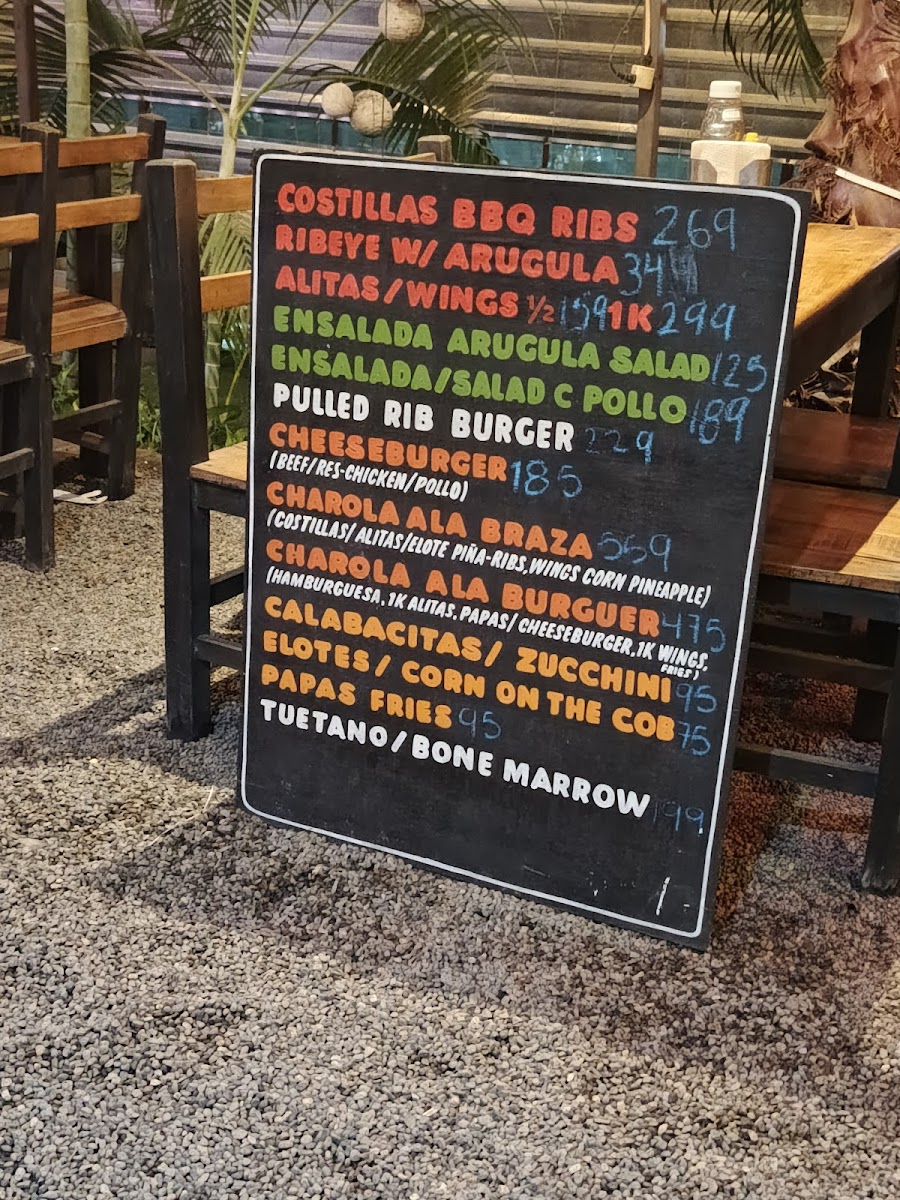 COSTILLAS BBQ RIBS 269
RIBEYE W/ ARUGULA
ALITAS/WINGS ½ 159 1K 299
ENSALADA ARUGULA SALAD 125
ENSALADA/SALAD C POLLO 189
PULLED RIB BURGER 229
CHEESEBURGER 185
(BEEF/RES-CHICKEN/POLLO)
CHAROLA ALA BRAZA 559
(COSTILLAS/ ALITAS/ELOTE PIÑA-RIBS,WINGS CORN PINEAPPLE)
CHAROLA ALA BURGUER 475
(HAMBURGUESA, 1K ALITAS, PAPAS/ CHEESEBURGER, 1K WINGS,
FRIES)
CALABACITAS/ ZUCCHINI 95
ELOTES/ CORN ON THE COB 75
PAPAS FRIES 95
TUETANO/BONE MARROW 199